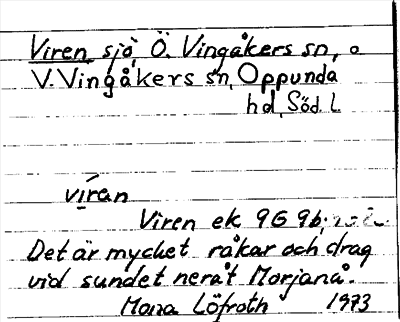 Viren, sjö, Ö. Vingåkers sn, o
V. Vingåkers sn, Oppunda
hd, Söd. l.
vi̱ran
Viren ek 9G 9b;
Det är mycket råkar och drag
vid sundet neråt Morjanå.
Mona Löfroth 1973